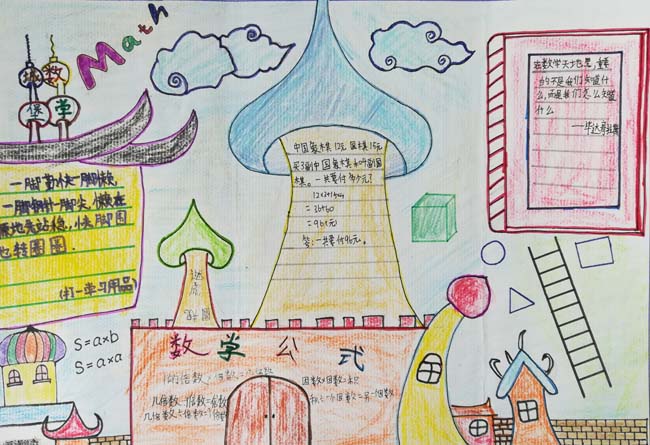 Math
城数
堡学
中国象棋12元 围棋15元
买3副中国象棋和4副围
棋。一共要付多少元?
=36+60
=96(元)
答:一共要付96元。
在数学天地里,重要
的不是我们知道什
么,而是我们怎么知道
什么
一脚勤快一脚懒,
一脚钢针一脚尖,懒在
原地去站稳,快脚围
地转圈圈
(打一学习用品)
谜底
圆规
S=a×b
S=a×a
数学公式
因数×因数=积
几倍数÷1倍数=倍数
几倍数÷倍数=1倍数
积÷一个因数=另一个因数